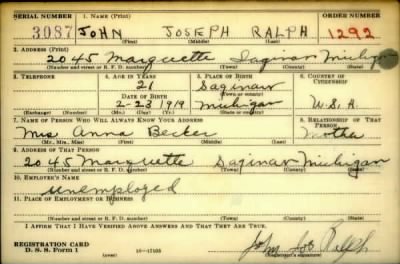 SERIAL NUMBER 1. NAME (Print) ORDER NUMBER
3087 JOHN JOSEPH RALPH 1292
(First) (Middle) (Last)
2. ADDRESS (Print)
2045 Marquette Saginaw Michigan
(Number and street or R. F. D. number) (Town) (County) (State)
3. TELEPHONE 4. AGE IN YEARS 5. PLACE OF BIRTH 6. COUNTRY OF CITIZENSHIP
21 Saginaw
DATE OF BIRTH (Town or county)
2-23 1919 Michigan U.S.A.
(Exchange) (Number) (Mo.) (Day) (Yr.) (State or country)
7. NAME OF PERSON WHO WILL ALWAYS KNOW YOUR ADDRESS 8. RELATIONSHIP OF THAT PERSON
Mrs Anna Becker Mother
(Mr., Mrs., Miss) (First) (Middle) (Last)
9. ADDRESS OF THAT PERSON
2045 Marquette Saginaw Michigan
(Number and street or R. F. D. number) (Town) (County) (State)
10. EMPLOYER'S NAME
unemployed
11. PLACE OF EMPLOYMENT OR BUSINESS
(Number and street or R. F. D. number) (Town) (County) (State)
I AFFIRM THAT I HAVE VERIFIED ABOVE ANSWERS AND THAT THEY ARE TRUE.
REGISTRATION CARD
D. S. S. Form 1 John Ralph